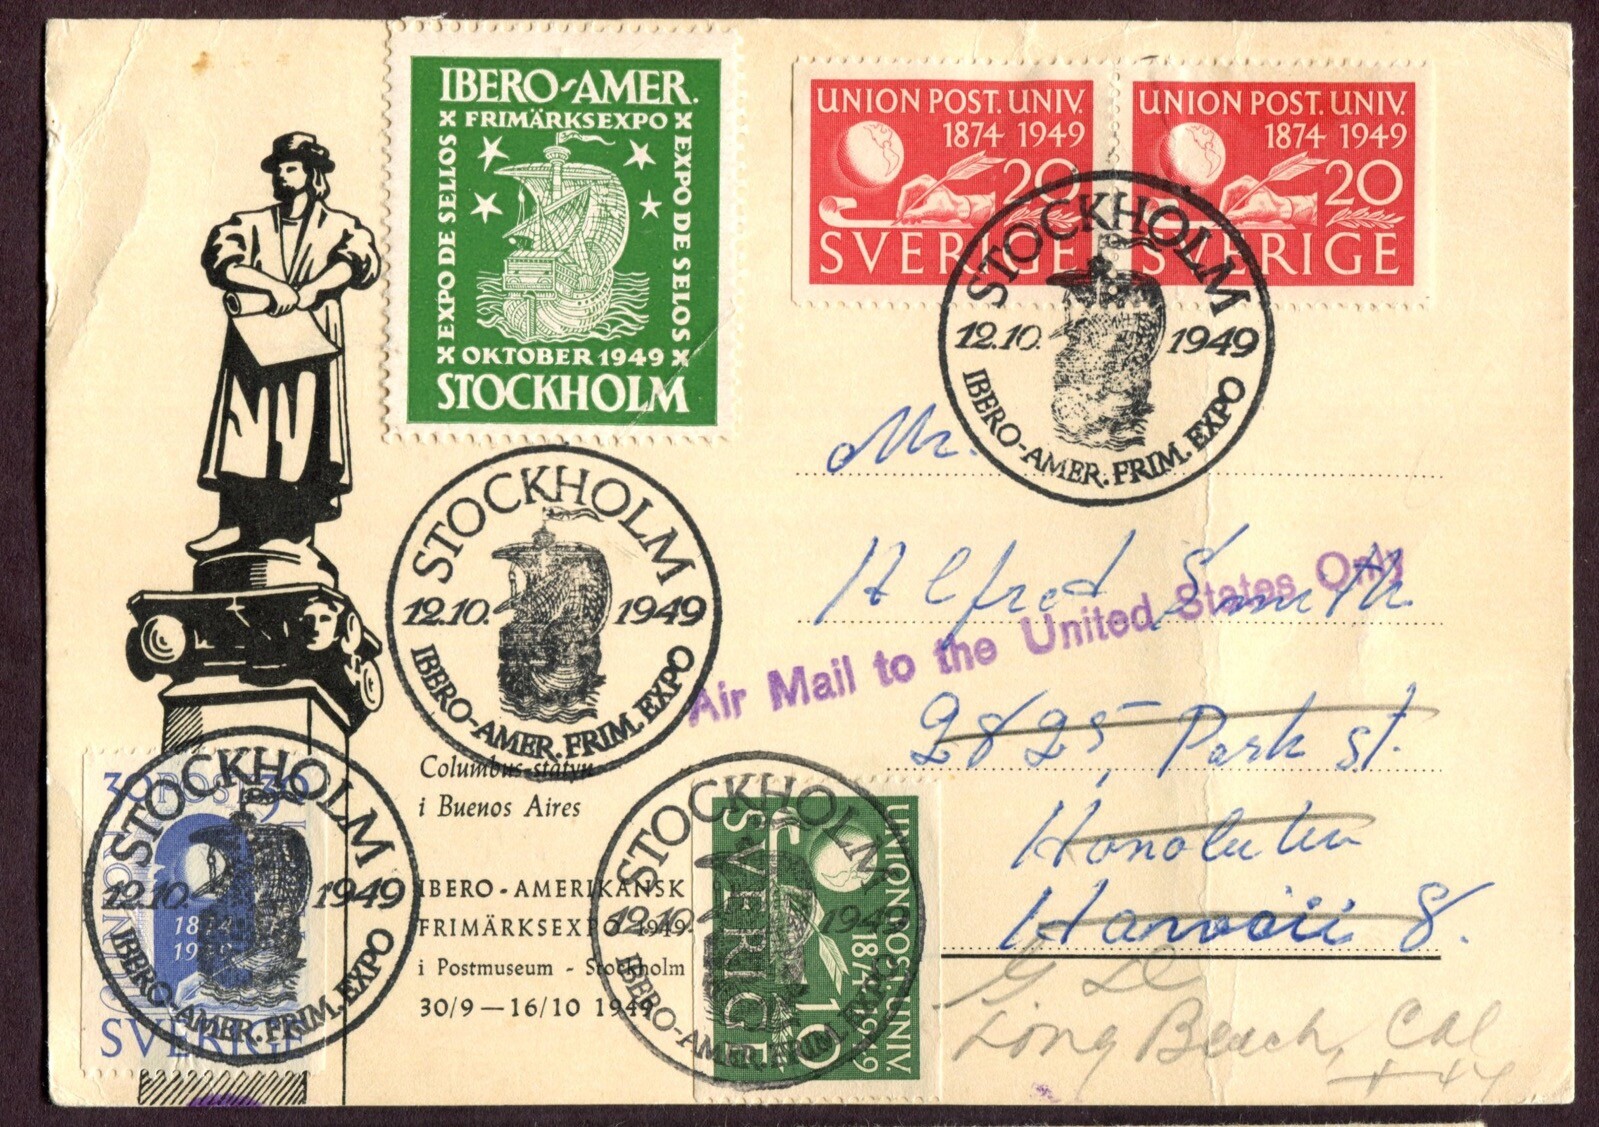 IBERO-AMER.
FRIMÄRKSEXPO
EXPO DE SELLOS
EXPO DE SELOS
OKTOBER 1949
STOCKHOLM
UNION POST. UNIV.
1874 1949
20
SVERIGE
UNION POST. UNIV.
1874 1949
20
SVERIGE
STOCKHOLM
12.10. 1949
IBERO-AMER. FRIM. EXPO
Mr.
Alfred Smith
Air Mail to the United States Only
2825, Park st.
Honolulu
Long Beach, Cal
STOCKHOLM
12.10. 1949
IBERO-AMER. FRIM. EXPO
Columbus-statyn
i Buenos Aires
IBERO-AMERIKANSK
FRIMÄRKSEXPO 1949
i Postmuseum - Stockholm
30/9 — 16/10 1949
30
1874
1949
SVERIGE
STOCKHOLM
12.10. 1949
IBERO-AMER. FRIM. EXPO
UNION POST. UNIV.
1874 1949
10
SVERIGE
STOCKHOLM
12.10. 1949
IBERO-AMER. FRIM. EXPO